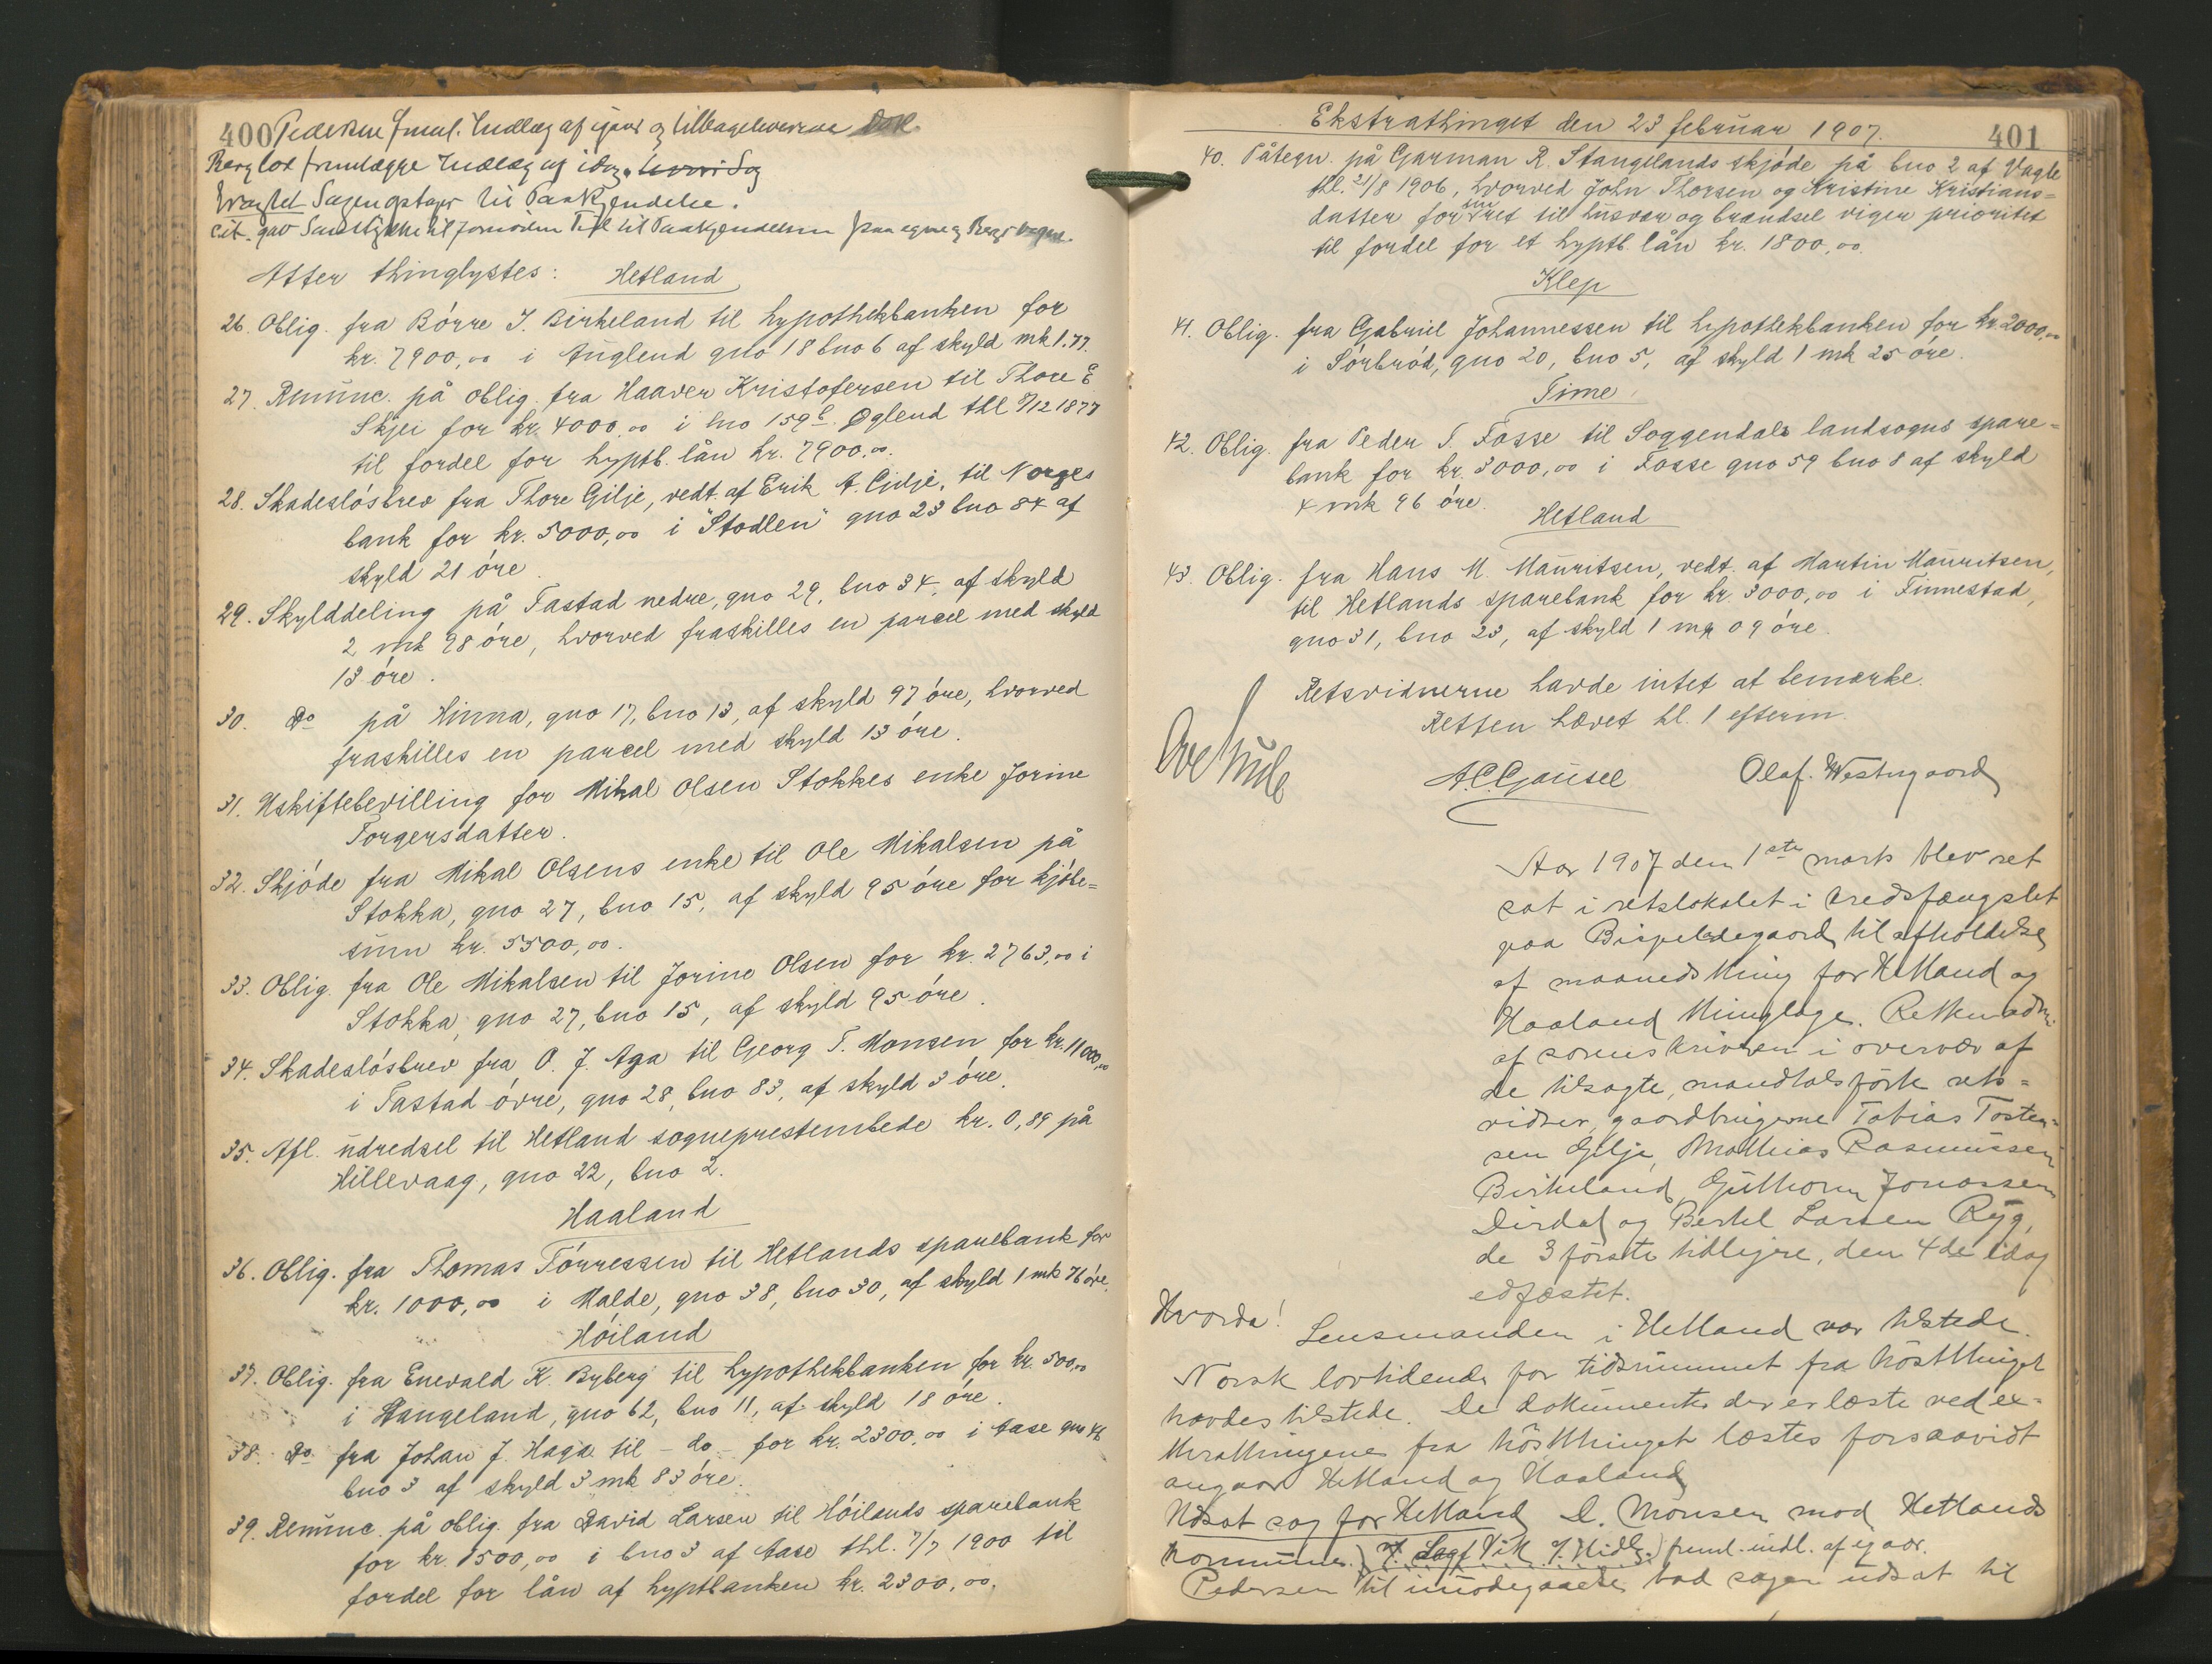 400 Pedersen freml. Indlæg af igaar og tilbageleverede Dok.
Berg lod fremlægge Indlæg af idag.
Sagen optages til Paakjendelse.
Atter thinglystes: Hetland
26. Oblig. fra Börre I. Birkeland til hypothekbanken for
kr. 7900,00 i Auglend gno 18 bno 6 af skyld mk 1.77.
27. Renunc. på oblig. fra Haaver Kristofersen til Thore E.
Skjei for kr. 4000,00 i lno 159 b Öglend thl 8/12 1877
til fordel for hyptb. lån kr. 7900.00.
28. Skadeslösbrev fra Thore Gilje, vedt. af Erik A. Gilje, til Norges
bank for kr. 5000,00 i "Stodlen" gno 23 bno 84 af
skyld 21 öre.
29. Skylddeling på Tastad nedre, gno 29, bno 34, af skyld
2 mk 98 öre, hvorved fraskilles en parcel med skyld
13 öre.
30. Do på Hinna, gno 17, bno 13, af skyld 97 öre, hvorved
fraskilles en parcel med skyld 13 öre.
31. Uskiftebevilling for Mikal Olsen Stokkes enke Jorine
Torgersdatter.
32. Skjöde fra Mikal Olsens enke til Ole Mikalsen på
Stokka, gno 27, bno 15, af skyld 95 öre for kjöbe=
sum kr. 5500,00.
33. Oblig. fra Ole Mikalsen til Jorine Olsen for kr. 2763,00 i
Stokka, gno 27, bno 15, af skyld 95 öre.
34. Skadeslösbrev fra O. J. Aga til Georg T. Monsen for kr. 11000,00
i Tastad övre, gno 28, bno 83, af skyld 3 öre.
35. Afl. udredsel til Hetland sogneprestembede kr. 0,89 på
Hillevaag, gno 22, bno 2.
Haaland
36. Oblig. fra Thomas Törressen til Hetlands sparebank for
kr. 1000,00 i Malde, gno 38, bno 30, af skyld 1 mk 76 öre.
Höiland
37. Oblig. fra Enevald K. Byberg til hypothekbanken for kr. 500,00
i Hangeland, gno 62, bno 11, af skyld 18 öre.
38. Do fra Johan J. Haga til - do - for kr. 2300,00 i Aase gno 46
bno 3 af skyld 3 mk 83 öre.
39. Renunc. på oblig. fra David Larsen til Höilands sparebank
for kr. 1500,00 i bno 3 af Aase thl. 7/7 1900 til
fordel for lån af hyptbanken kr. 2300,00.
Ekstrathinget den 23 februar 1907. 401
40. Påtegn. på Garman R. Stangelands skjöde på bno 2 af Vagle
thl. 21/8 1906, hvorved John Thorsen og Kristine Kristians=
datter for sin ret til husvær og brændsel viger prioritet
til fordel for et hyptb. lån kr. 1800,00.
Klep
41. Oblig. fra Gabriel Johannessen til hypothekbanken for kr. 2000,00
i Sörbröd, gno 20, bno 5, af skyld 1 mk 25 öre.
Time
42. Oblig. fra Peder T. Fosse til Soggendals landsogns spare=
bank for kr. 3000,00 i Fosse gno 59 bno 8 af skyld
4 mk 96 öre.
Hetland
43. Oblig. fra Hans M. Mauritsen, vedt. af Martin Mauritsen,
til Hetlands sparebank for kr. 3000,00 i Finnestad,
gno 31, bno 23, af skyld 1 mk 09 öre.
Retsvidnerne havde intet at bemærke.
Retten hævet kl. 1 efterm.
A. C. Gausel Olaf. Westergaard
Aar 1907 den 1ste marts blev ret
sat i retslokalet i kredsfængslet
paa Bispeladegaard til afholdelse
af maanedsthing for Hetland og
Haaland thinglage. Retten adm.
af sorenskriveren i overvær af
de tilsagte, mandtalsförte rets=
vidner, gaardbrugerne Tobias Tosten=
sen Gilje, Mathias Rasmussen
Birkeland, Guthorm Jonassen
Dirdal og Bertel Larsen Ryg,
de 3 förste tidligere, den 4de idag
edfæstet.
Hvorda!
Lensmanden i Hetland var tilstede.
Norsk lovtidende for tidsrummet fra höstthinget
havdes tilstede. De dokumenter der er læste ved ex=
trathingene fra höstthinget læstes forsaavidt
angaar Hetland og Haaland
Udsat sag for Hetland D. Monsen mod Hetlands
kommune. freml. indl. af igaar.
Pedersen til imødegaaelse bad sagen udsat til